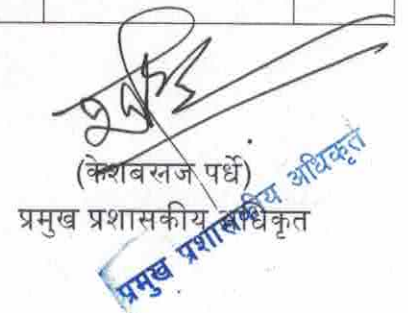 (केशबरनज पर्धे)
प्रमुख प्रशासकीय अधिकृत
प्रमुख प्रशासकीय अधिकृत